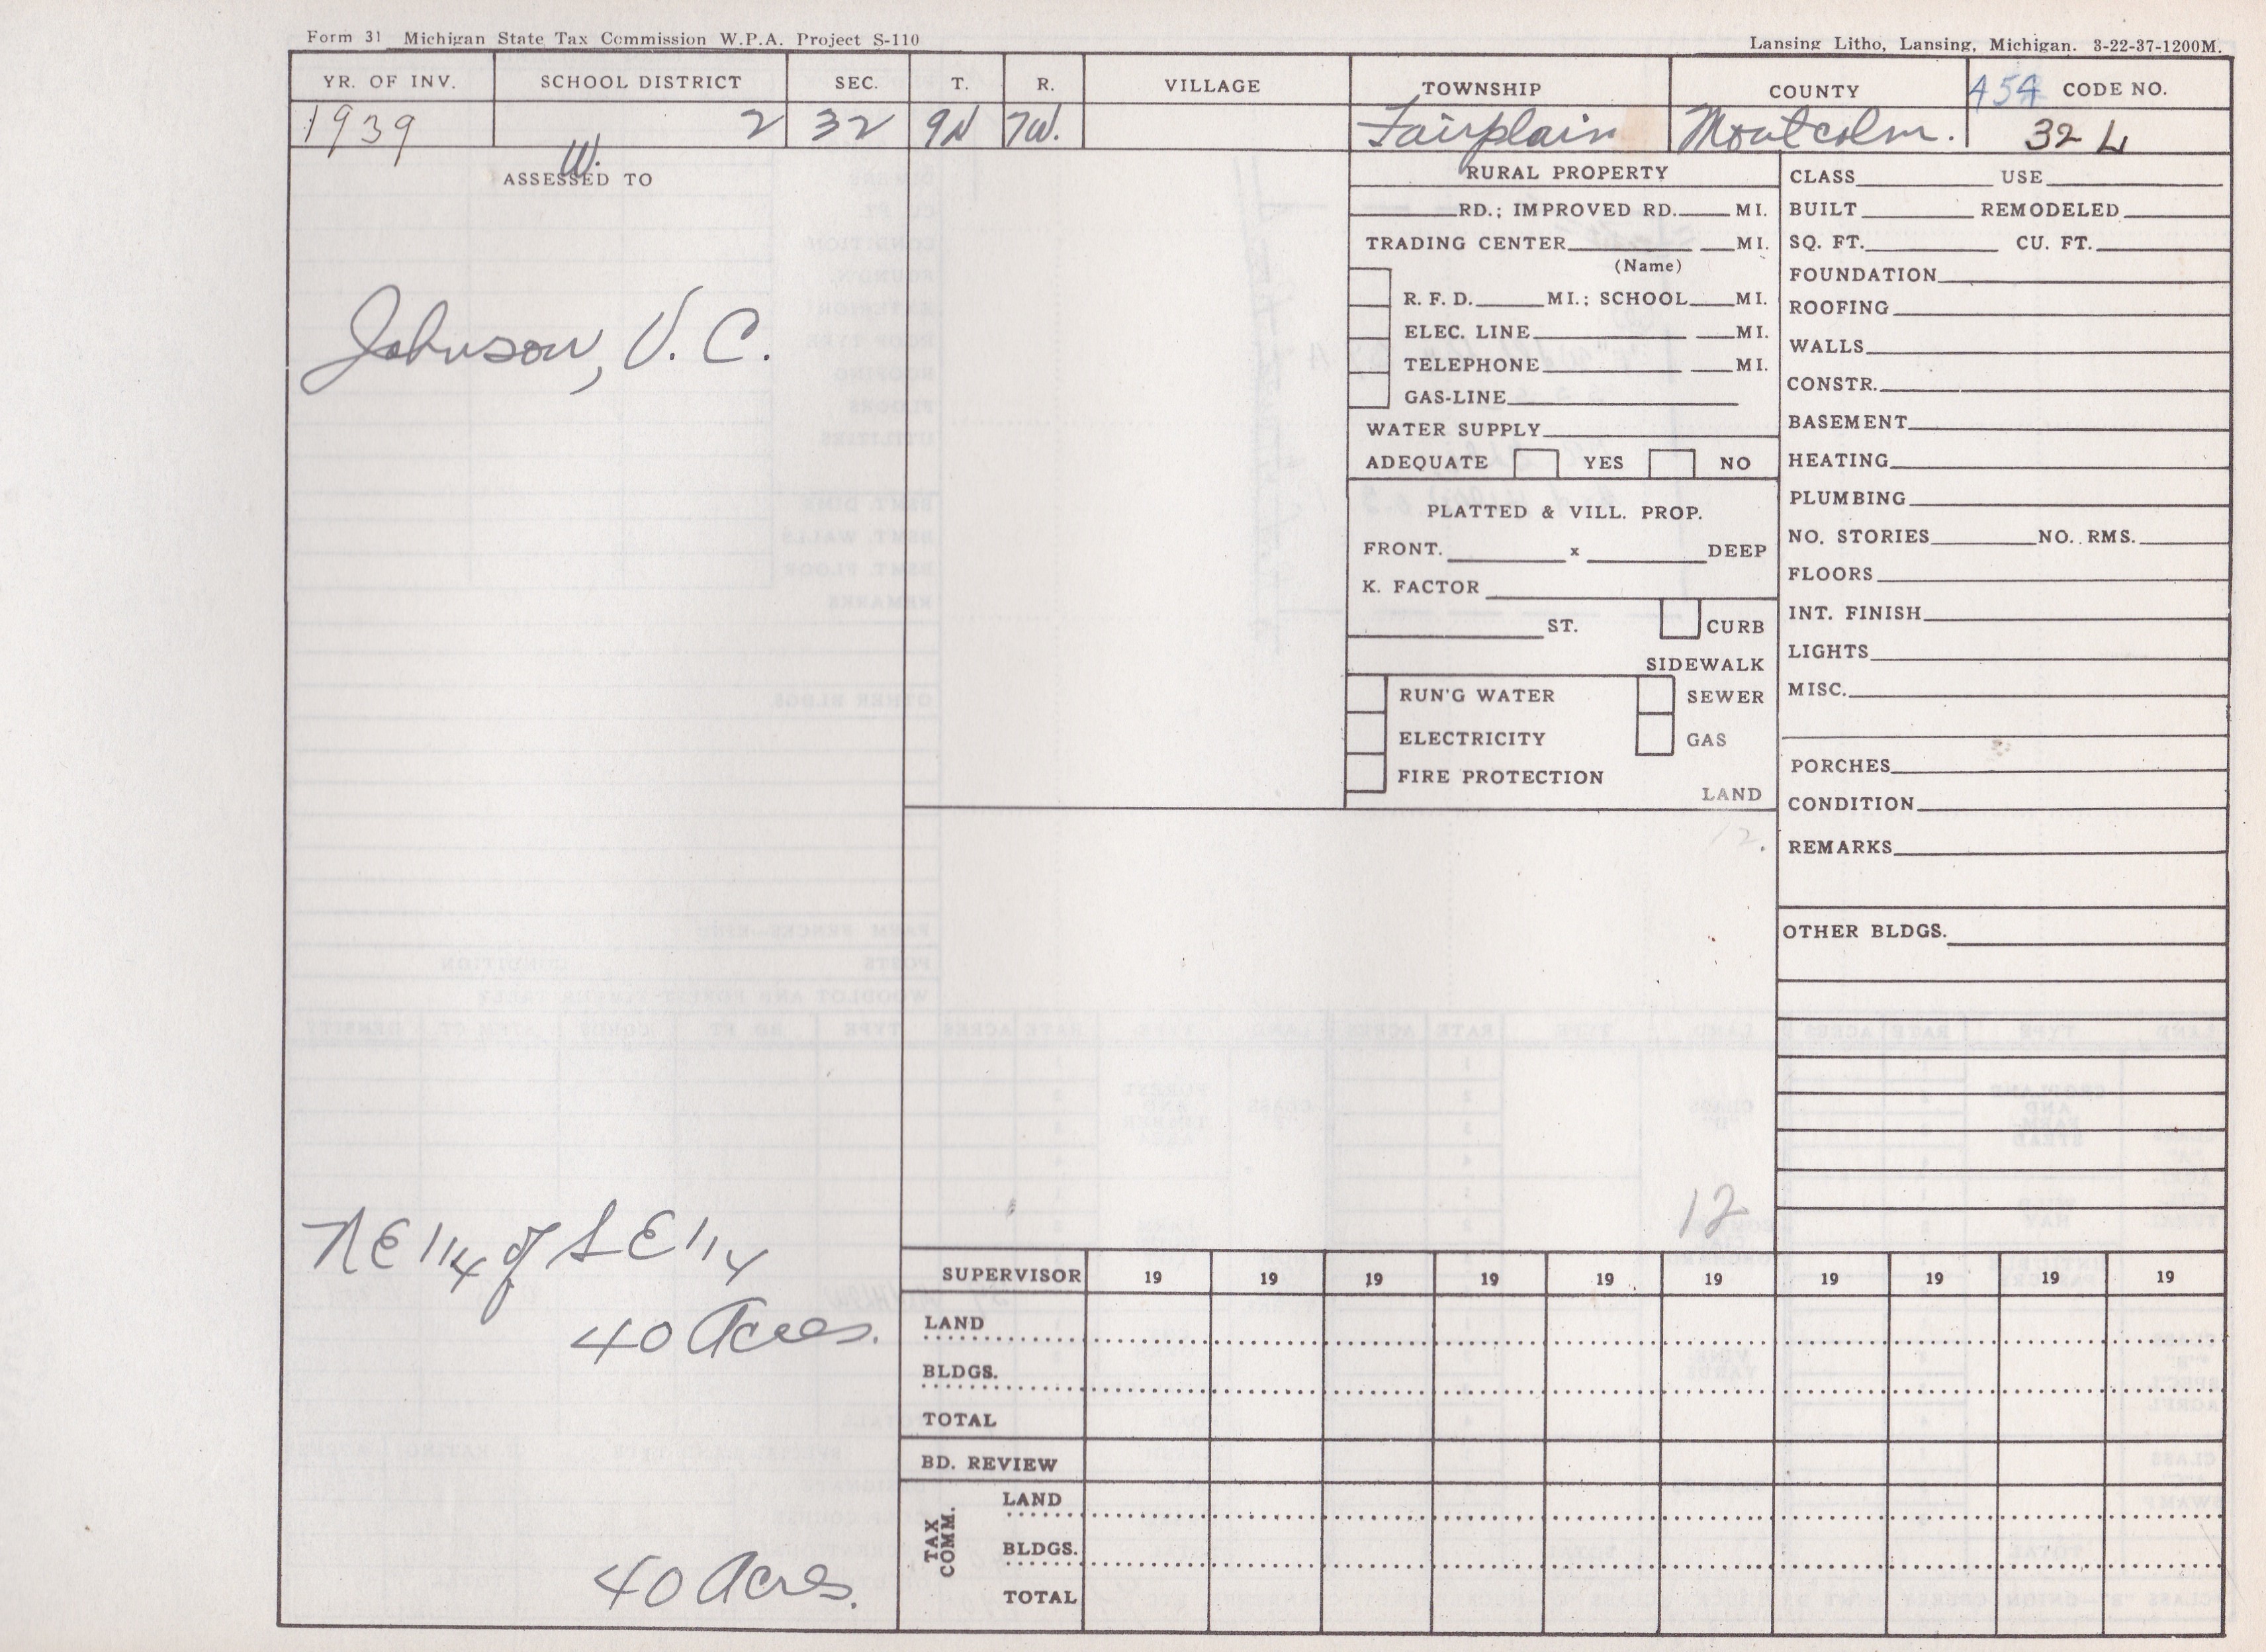 Form 31 Michigan State Tax Commission W.P.A. Project S-110
Lansing Litho, Lansing, Michigan. 3-22-37-1200M.
YR. OF INV. SCHOOL DISTRICT SEC. T. R. VILLAGE TOWNSHIP COUNTY 454 CODE NO.
1939 2 32 9N 7W. Fairplain Montcolm. 32 L
W.
ASSESSED TO
Johnson, V. C.
NE 1/4 of SE 1/4
40 Acres.
40 Acres.
RURAL PROPERTY
RD.; IMPROVED RD. MI.
TRADING CENTER MI.
(Name)
R. F. D. MI.; SCHOOL MI.
ELEC. LINE MI.
TELEPHONE MI.
GAS-LINE
WATER SUPPLY
ADEQUATE YES NO
PLATTED & VILL. PROP.
FRONT. x DEEP
K. FACTOR
ST. CURB
SIDEWALK
RUN'G WATER SEWER
ELECTRICITY GAS
FIRE PROTECTION
LAND
12.
12
CLASS USE
BUILT REMODELED
SQ. FT. CU. FT.
FOUNDATION
ROOFING
WALLS
CONSTR.
BASEMENT
HEATING
PLUMBING
NO. STORIES NO. RMS.
FLOORS
INT. FINISH
LIGHTS
MISC.
PORCHES
CONDITION
REMARKS
OTHER BLDGS.
SUPERVISOR 19 19 19 19 19 19 19 19 19 19
LAND
BLDGS.
TOTAL
BD. REVIEW
TAX COMM.
LAND
BLDGS.
TOTAL